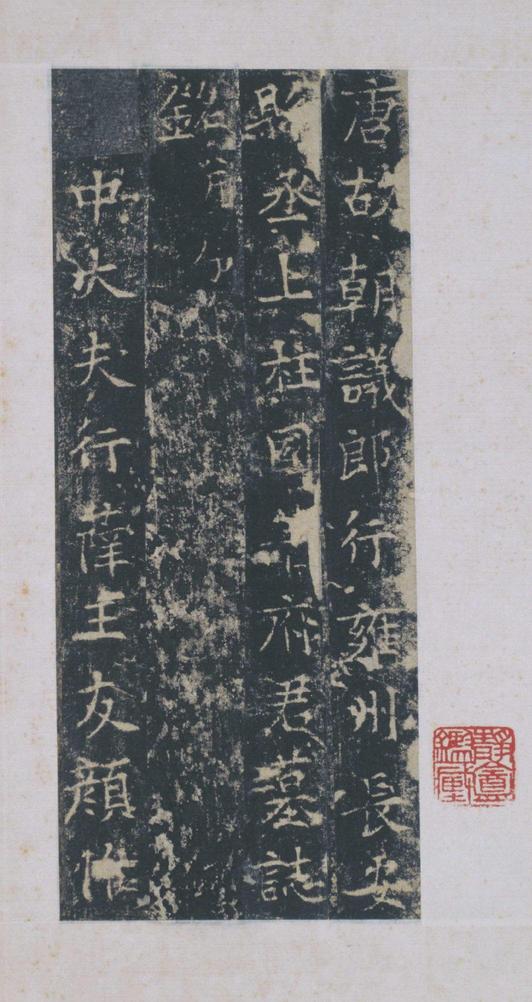 唐故朝議郎行雍州長安
縣丞上柱國府君墓誌
銘
中大夫行薛王友顏惟